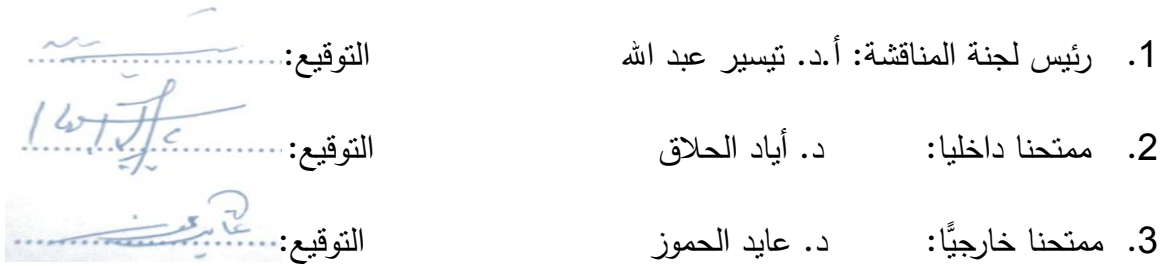 1. رئيس لجنة المناقشة: أ.د. تيسير عبد الله التوقيع:
2. ممتحنا داخليا: د. أياد الحلاق التوقيع:
3. ممتحنا خارجيًّا: د. عايد الحموز التوقيع: